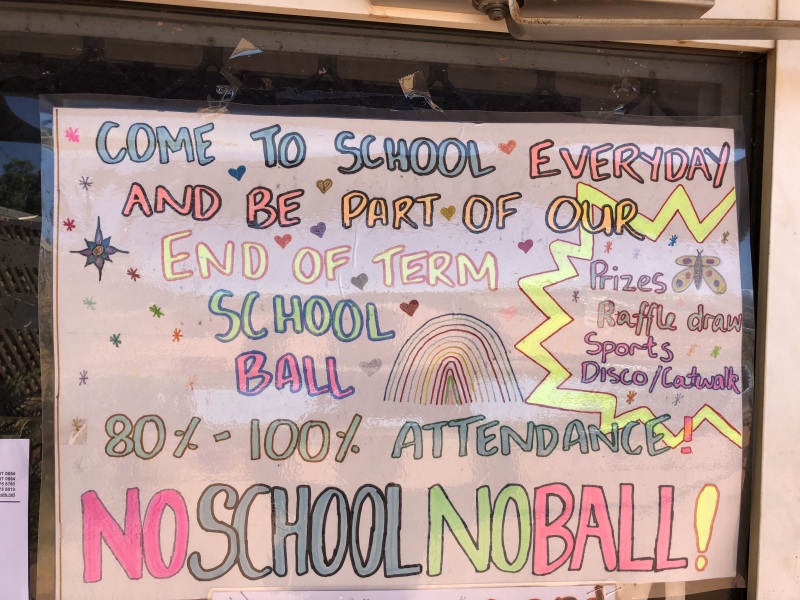 COME TO SCHOOL EVERYDAY
AND BE PART OF OUR
END OF TERM
SCHOOL
BALL
Prizes
Raffle draw
Sports
Disco/Catwalk
80% - 100% ATTENDANCE!
NO SCHOOL NO BALL!